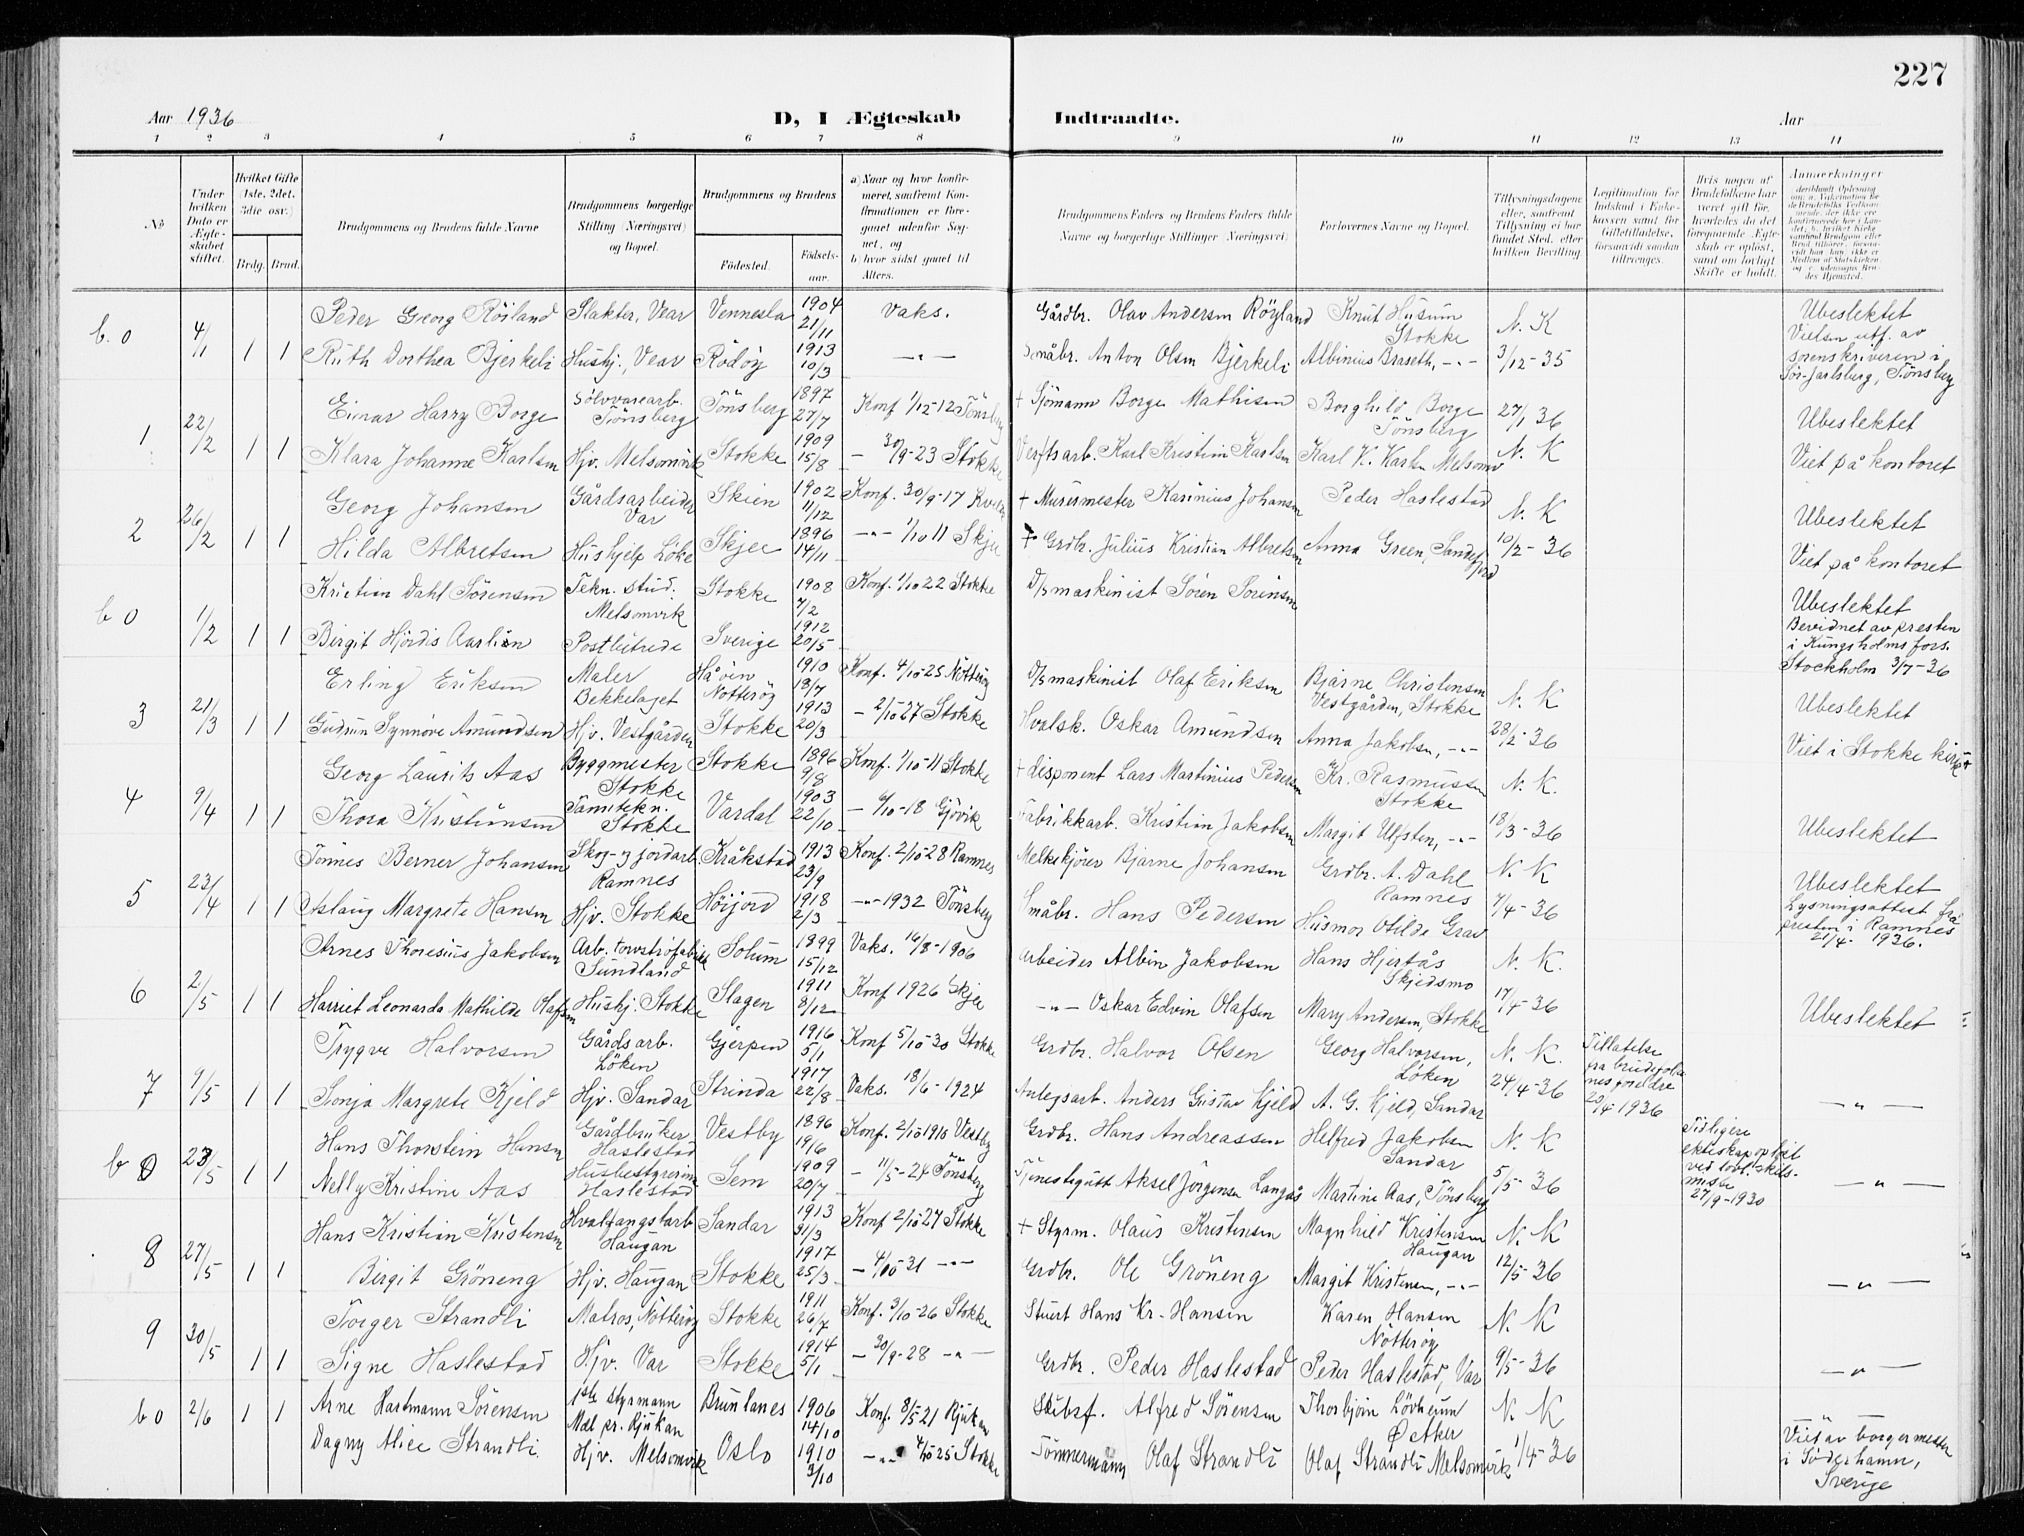 227
Aar 1936
D, I Ægteskab Indtraadte.
Aar
1 2 3 4 5 6 7 8 9 10 11 12 13 14
No
Under hvilken Dato er Ægteskabet stiftet.
Hvilket Gifte (1ste, 2det, 3die osv.)
Brdg. Brud.
Brudgommens og Brudens fulde Navne
Brudgommens borgerlige Stilling (Næringsvei) og Bopæl.
Brudgommens og Brudens
Fødested. Fødselsaar.
a) Naar og hvor konfirmeret, samfremt Konfirmationen er foregaaet udenfor Sognet, og
b) hvor sidst gaaet til Alters.
Brudgommens Faders og Brudens Faders fulde Navne og borgerlige Stillinger (Næringsvei)
Forlovernes Navne og Bopæl.
Tillysningsdagene eller, samfremt Tillysning ei har fundet Sted, efter hvilken Bevilling
Legitimation for Indskud i Enkekassen samt for Giftetilladelse, forsaavidt saadan tiltrænges.
Hvis nogen af Brudefolkene har været gift før, hvorledes da det foregaaende Ægteskab er opløst, samt om lovligt Skifte er holdt.
Anmærkninger
b. 0 4/1 1 1
Peder Georg Röiland Slakter, Vear Vennesla 1904 21/11 Vaks. Gårdbr. Olav Andersen Röyland Knut Husum Stokke N. K
Ruth Dorthea Bjerkeli Hushj., Vear Rödöy 1913 10/3 —"— Småbr. Anton Olsen Bjerkeli Albinius Braseth, -"- 3/12-35
Ubeslektet
Vielsen utf. av
sorenskriveren i
Sör-Jarlsberg, Tönsberg
1 22/2 1 1
Einar Harry Borge Sölvvarearb. Tönsberg Tönsberg 1897 27/7 Konf 1/12-12 Tönsberg + Sjömann Borge Mathisen Borghild Borge Tönsberg 27/1 36
Klara Johanne Karlsen Hjv. Melsomvik Stokke 1909 15/8 — 30/9-23 Stokke Verftsarb. Karl Kristian Karlsen Karl K. Karlsen Melsomv N. K
Ubeslektet
Viet på kontoret
2 26/2 1 1
Georg Johansen Gårdsarbeider Var Skien 1902 11/12 Konf. 30/9-17 + Murermester Karinius Johansen Peder Haslestad N. K
Hilda Albretsen Hushjelp Löke Skjee 1896 14/11 —"— 1/10 11 Skjee + Grdbr. Julius Kristian Albretsen Anna Green, Sandefjord 10/2-36
Ubeslektet
Viet på kontoret
b 0 1/2 1 1
Kristian Dahl Sörensen Tekn. stud. Melsomvik Stokke 1908 7/2 Konf. 1/10 22 Stokke D/s maskinist Sören Sörensen
Birgit Hjördis Aarlien Postbetrede Sverige 1912 20/5
Ubeslektet
Bevidnet av presten
i Kungsholms fors.
Stockholm 3/7-36
3 21/3 1 1
Erling Eriksen Maler Bekkelaget Håöen Nötteröy 1910 18/7 Konf. 4/10-25 Nötteröy D/s maskinist Olaf Eriksen Bjarne Christensen Vestgården, Stokke N. K
Gudrun Synnöve Amundsen Hjv. Vestgården Stokke 1913 20/3 — 2/10-27 Stokke Hvalsk. Oskar Amundsen Anna Jakobsen, -"- 28/2-36
Ubeslektet
Viet i Stokke kirke
4 9/4 1 1
Georg Laurits Aas Byggmester Stokke Stokke 1896 9/8 Konf. 1/10-11 Stokke + disponent Lars Martinius Pedersen Kr. Rasmussen Stokke N. K.
Thora Kristiansen Tanntekn. Stokke Vardal 1903 22/10 — 6/10-18 Gjövik Fabrikkarb. Kristian Jakobsen Margit Ulfsten, -"- 18/3-36
Ubeslektet
5 23/4 1 1
Tönnes Berner Johansen Skog- og jordarb. Ramnes Kråkstad 1913 23/9 Konf. 2/10-28 Ramnes Melkekjörer Bjarne Johansen Grdbr. A. Dahl Ramnes N. K
Aslaug Margrete Hansen Hjv. Stokke Höijord 1918 2/3 —"— 1932 Tönsberg Småbr. Hans Pedersen Husmor Otilde Grav 7/4-36
Ubeslektet
Lysningsattest fra
presten i Ramnes
21/4- 1936.
6 2/5 1 1
Arnes Thoresius Jakobsen Arb. torvströfabrik Sundland Solum 1899 15/12 Vaks. 16/8-1906 Arbeider Albin Jakobsen Hans Hjertås Skjedsmo N. K.
Harriet Leonarda Mathilde Olafsen Hushj. Stokke Slagen 1911 8/12 Konf 1926 Skjee -"- Oskar Edvin Olafsen Mary Andersen, Stokke 17/4-36
Ubeslektet
7 9/5 1 1
Trygve Halvorsen Gårdsarb. Löken Gjerpen 1916 5/1 Konf 5/10-30 Stokke Grdbr. Halvor Olsen Georg Halvorsen, Löken N. K.
Sonja Margrete Kjeld Hjv. Sandar Strinda 1917 22/8 Vaks. 18/6-1924 Anlegsarb. Anders Gustav Kjeld A. G. Kjeld, Sandar 24/4-36
Tillatelse
fra brudefolke
nes foreldre
20/4 1936
— " —
b 0 23/5 1 1
Hans Thorstein Hansen Gårdbruker Haslestad Vestby 1896 19/6 Konf. 2/10 1910 Vestby Grdbr. Hans Andreassen Helfred Jakobsen Sandar N. K
Nelly Kristine Aas Husbestyrerinne Haslestad Sem 1909 20/7 — 11/5-24 Tönsberg Tjenestegutt Aksel Jörgensen Langås Martine Aas, Tönsberg 5/5-36
Tidligere
ekteskap oplöst
ved lovl. skils-
misse
27/9-1930
— " —
8 27/5 1 1
Hans Kristian Kristensen Hvalfangstarb Haugan Sandar 1913 31/3 Konf 2/10-27 Stokke + Styrm. Olaus Kristensen Magnhild Kristensen Haugan N. K
Birgit Gröneng Hjv. Haugan Stokke 1917 25/3 — 4/10-31 —"— Grdbr. Ole Gröneng Margit Kristensen, -"- 12/5-36
— " —
9 30/5 1 1
Torger Strandli Matros, Nötteröy Stokke 1911 26/7 Konf. 3/10-26 Stokke Stuert Hans Kr. Hansen Karen Hansen Nötteröy N. K
Signe Haslestad Hjv. Var Stokke 1914 5/1 — 30/9-28 —"— Grdbr. Peder Haslestad Peder Haslestad, Var 9/5-36
— " —
b 0 2/6 1 1
Arne Hartmann Sörensen 1ste styrmann Mæl pr. Rjukan Brunlanes 1906 14/10 Konf. 8/5-21 Rjukan Skibsf. Alfred Sörensen Thorbjörn Lövheim Ö Aker N. K
Dagny Alice Strandli. Hjv. Melsomvik Oslo 1910 3/10 —"— 4/10 25 Stokke Tömmermann Olaf Strandli Olaf Strandli Melsomvik 1/4-36
Viet av borgermester
i Söderhamn,
Sverige